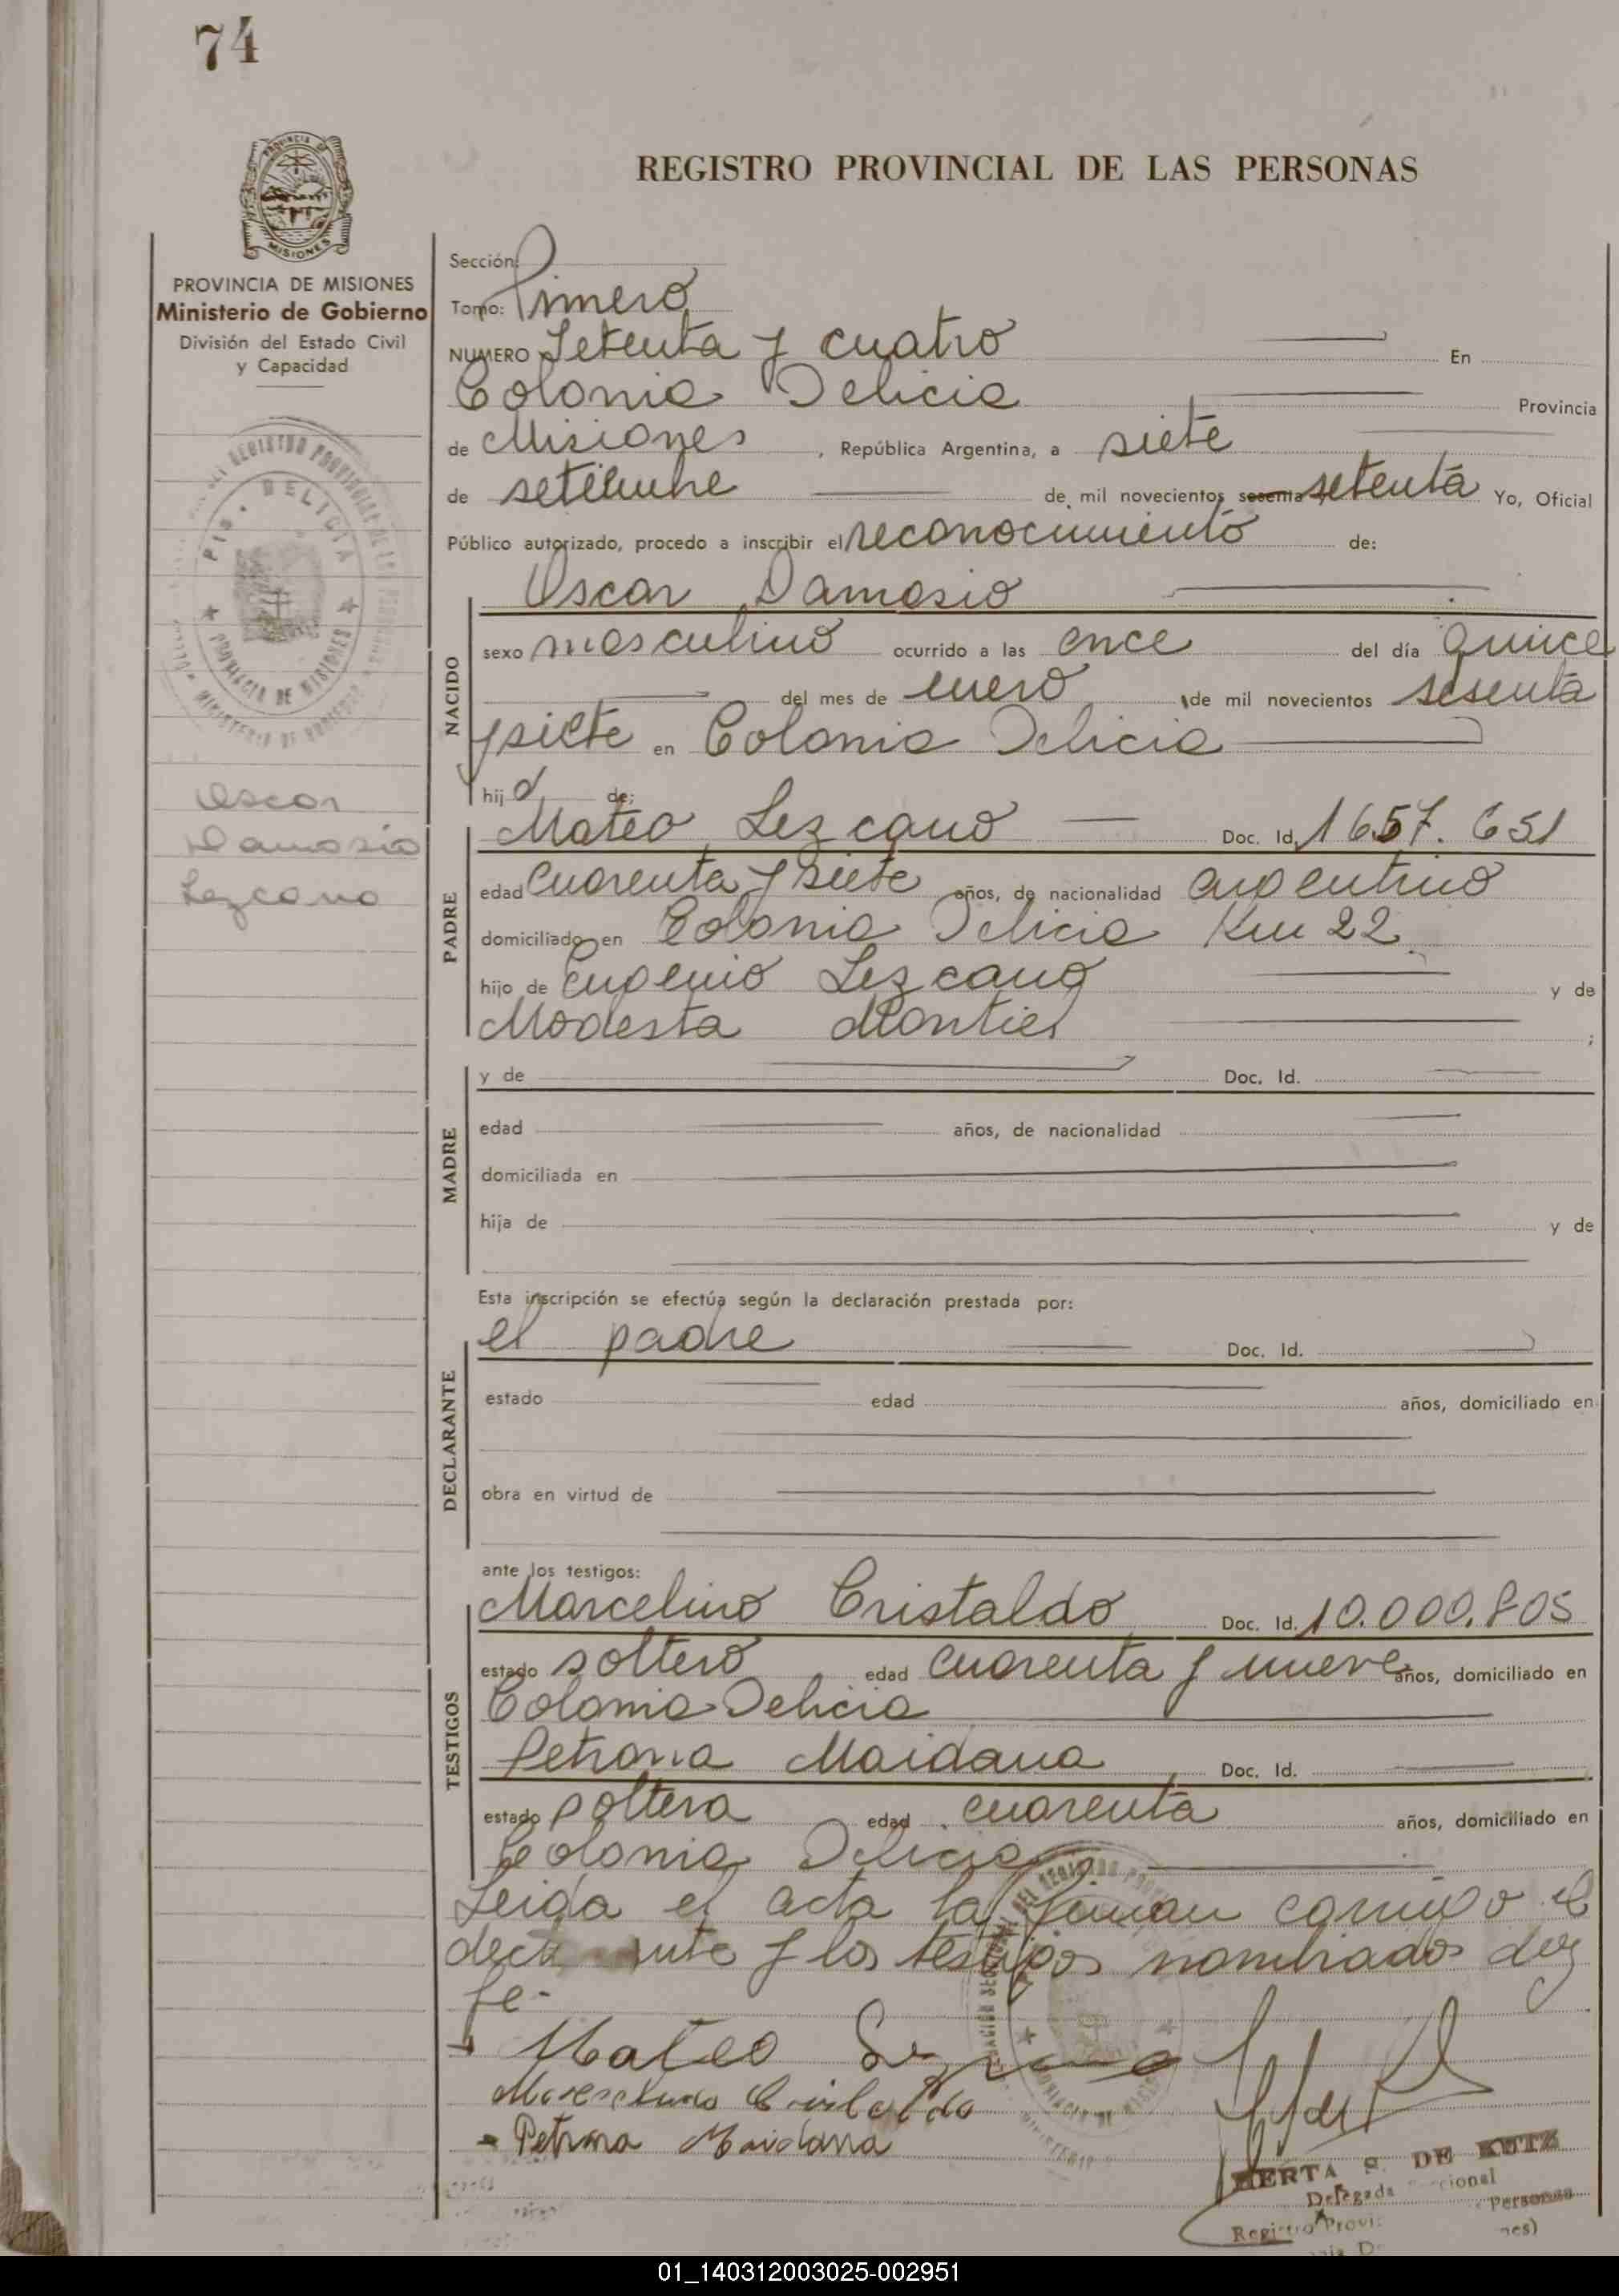 74
PROVINCIA DE MISIONES
Ministerio de Gobierno
División del Estado Civil
y Capacidad
Oscar
Damasio
Lezcano
REGISTRO PROVINCIAL DE LAS PERSONAS
Sección:
Tomo: Primero
NUMERO Setenta y cuatro En
Colonia Delicia Provincia
de Misiones, República Argentina, a siete
de setiembre de mil novecientos sesenta setenta Yo, Oficial
Público autorizado, procedo a inscribir el reconocimiento de:
Oscar Damasio
NACIDO
sexo masculino ocurrido a las once del día quince
del mes de enero de mil novecientos sesenta
y siete en Colonia Delicia
hijo de:
PADRE
Mateo Lezcano Doc. Id. 1657.651
edad Cuarenta y siete años, de nacionalidad argentino
domiciliado en Colonia Delicia Km 22
hijo de Eugenio Lezcano y de
Modesta Montiel ;
MADRE
y de Doc. Id.
edad años, de nacionalidad
domiciliada en
hija de y de
Esta inscripción se efectúa según la declaración prestada por:
DECLARANTE
el padre Doc. Id.
estado edad años, domiciliado en
obra en virtud de
ante los testigos:
TESTIGOS
Marcelino Cristaldo Doc. Id. 10.000.805
estado soltero edad cuarenta y nueve años, domiciliado en
Colonia Delicia
Petrona Maidana Doc. Id.
estado soltera edad cuarenta años, domiciliado en
Colonia Delicia
Leida el acta la firman conmigo el
y los testigos nombrados doy
fe-
Mateo Lezcano
Marcelino Cristaldo
- Petrona Maidana
HERTA S. DE KUTZ
Delegada
Registro Provi
Personas
01_140312003025-002951